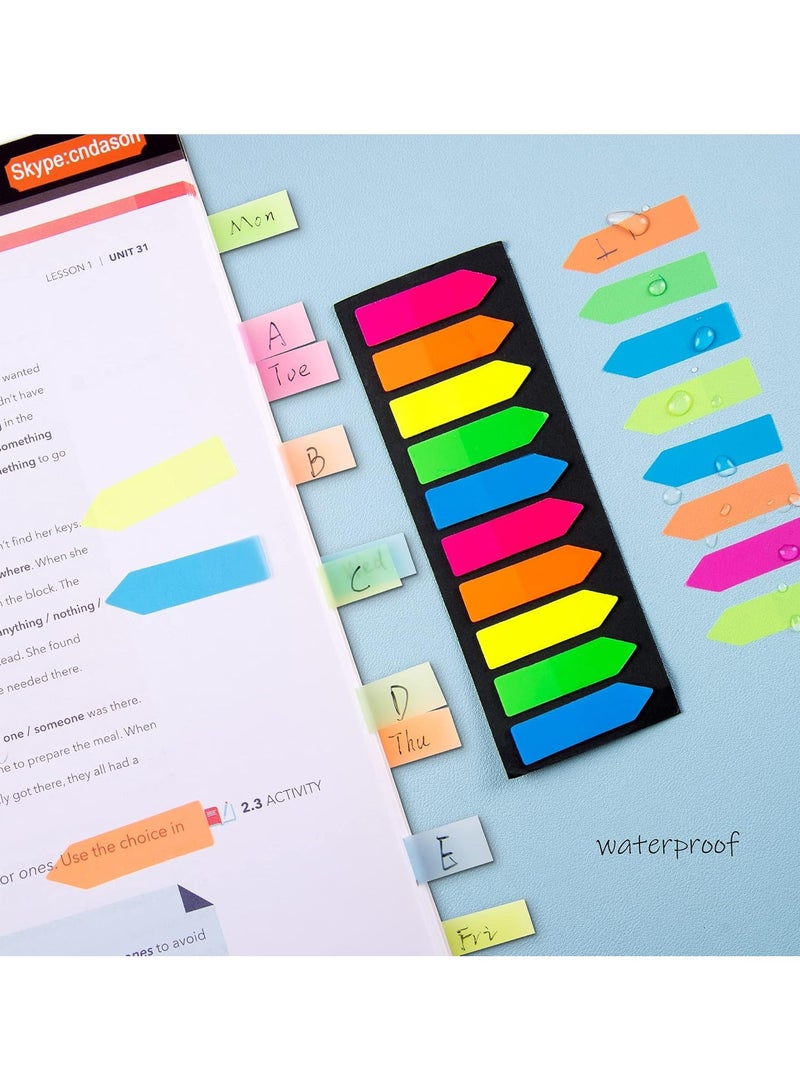 Skype:cndason
LESSON 1 | UNIT 31
wanted
dn't have
in the
something
nething to go
n't find her keys.
where. When she
the block. The
anything / nothing /
ead. She found
e needed there.
one / someone was there.
ne to prepare the meal. When
ly got there, they all had a
2.3 ACTIVITY
or ones. Use the choice in
ones to avoid
Mon
A
Tue
B
C
Wed
D
Thu
E
Fri
waterproof